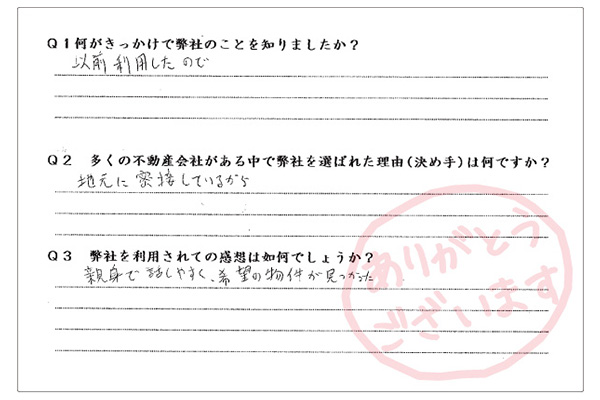 Q1何がきっかけで弊社のことを知りましたか？
以前利用したので
Q2 多くの不動産会社がある中で弊社を選ばれた理由（決め手）は何ですか？
地元に密接しているから
Q3 弊社を利用されての感想は如何でしょうか？
親身で話しやすく、希望の物件が見つかった
ありがとう
ございます